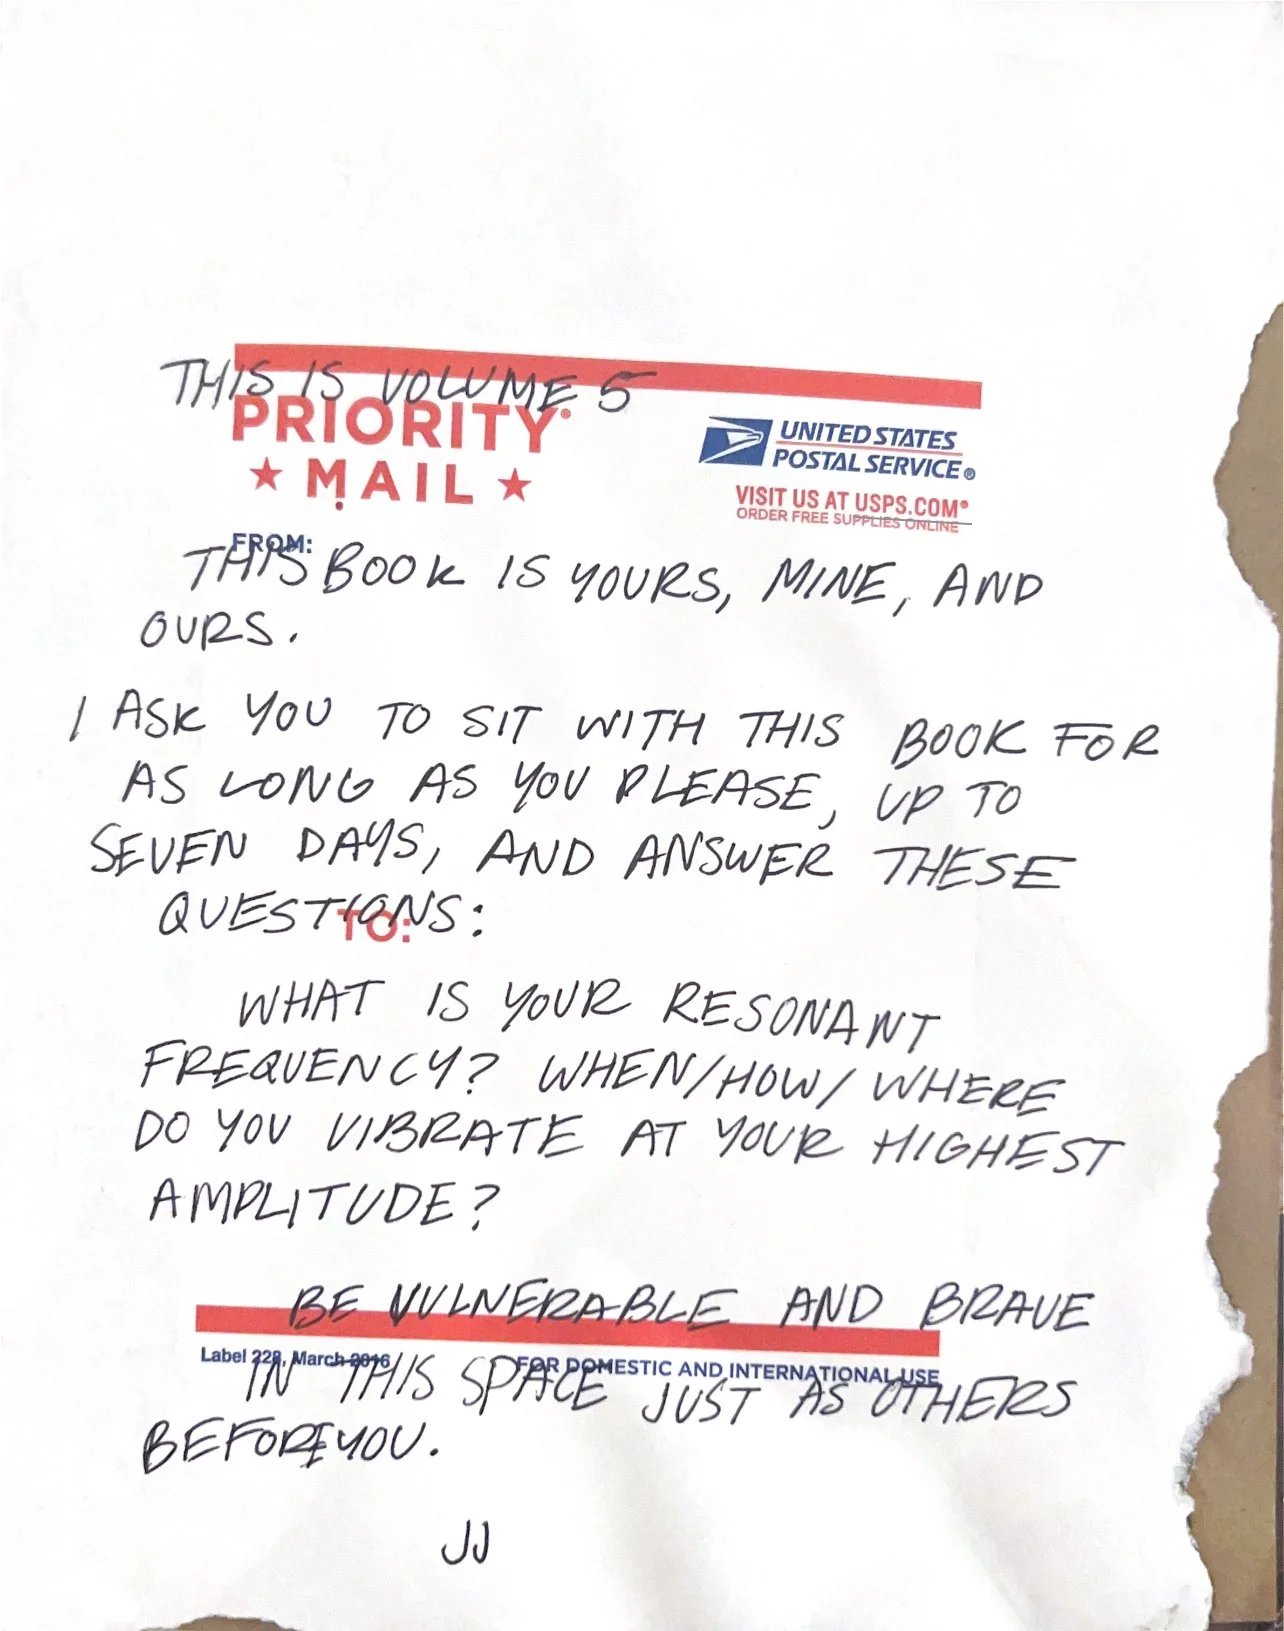 THIS IS VOLUME 5
PRIORITY®
★ MAIL ★
UNITED STATES
POSTAL SERVICE®
VISIT US AT USPS.COM®
ORDER FREE SUPPLIES ONLINE
FROM:
THIS BOOK IS YOURS, MINE, AND
OURS.
I ASK YOU TO SIT WITH THIS BOOK FOR
AS LONG AS YOU PLEASE, UP TO
SEVEN DAYS, AND ANSWER THESE
QUESTIONS:
TO:
WHAT IS YOUR RESONANT
FREQUENCY? WHEN/HOW/WHERE
DO YOU VIBRATE AT YOUR HIGHEST
AMPLITUDE?
BE VULNERABLE AND BRAVE
Label 228, March 2016 FOR DOMESTIC AND INTERNATIONAL USE
IN THIS SPACE JUST AS OTHERS
BEFORE YOU.
JJ